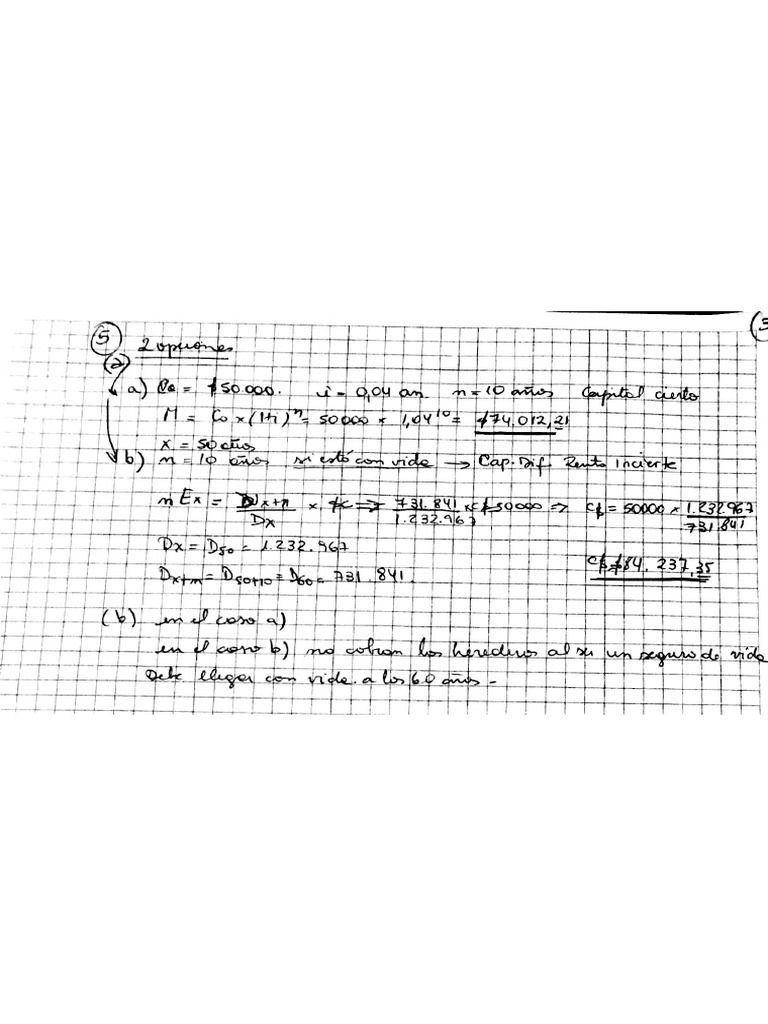 5 2 opciones
(a)
a) Co = $50.000. i = 0,04 an. n = 10 años Capital cierto
M = Co x (1+i)^n = 50000 x 1,04^10 = $74.012,21
x = 50 años
b) n = 10 años si está con vida → Cap. Dif. Renta Incierta
nEx = Dx+n/Dx x $c => 731.841/1.232.967 x c$ 50000 => c$ = 50000 x 1.232.967/731.841
Dx = D50 = 1.232.967
c$ = $84.237,35
Dx+n = D50+10 = D60 = 731.841.
(b) en el caso a)
en el caso b) no cobran los herederos al ser un seguro de vida
Debe llegar con vida a los 60 años -